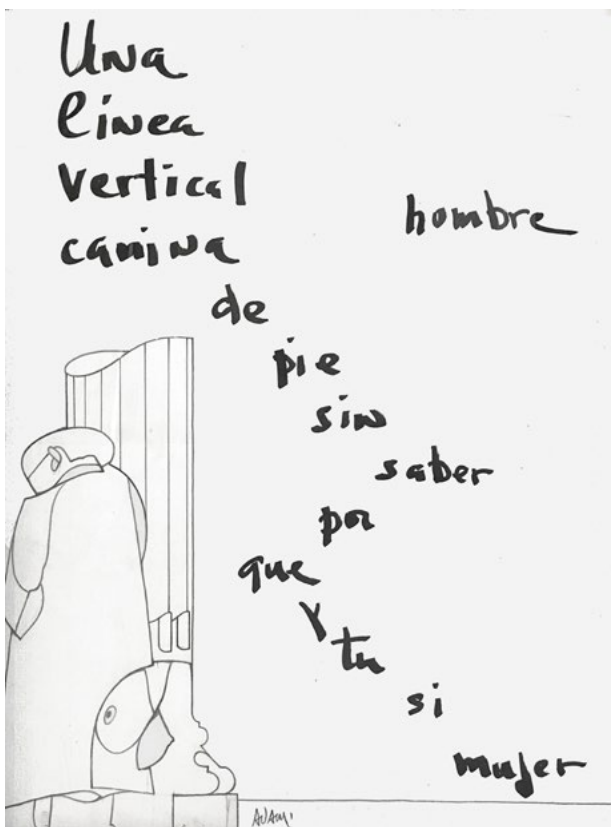 Una
línea
vertical
hombre
camina
de
pie
sin
saber
por
que
y
tu
si
mujer
ADAMI